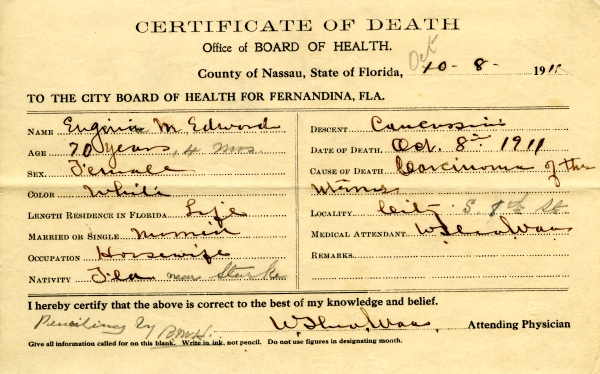 CERTIFICATE OF DEATH
Office of BOARD OF HEALTH.
County of Nassau, State of Florida, Oct 10-8- 1911
TO THE CITY BOARD OF HEALTH FOR FERNANDINA, FLA.
NAME Eugina M Edword
AGE 70 years, 4 mos.
SEX. Female
COLOR White
LENGTH RESIDENCE IN FLORIDA Life
MARRIED OR SINGLE
OCCUPATION Housewife
NATIVITY Fla near Starke
DESCENT Caucassian
DATE OF DEATH. Oct. 8th 1911
CAUSE OF DEATH Carcinoma of the
Uterus
LOCALITY City S. 8th St
MEDICAL ATTENDANT
REMARKS.
I hereby certify that the above is correct to the best of my knowledge and belief.
Penciling by Attending Physician
Give all information called for on this blank. Write in ink, not pencil. Do not use figures in designating month.